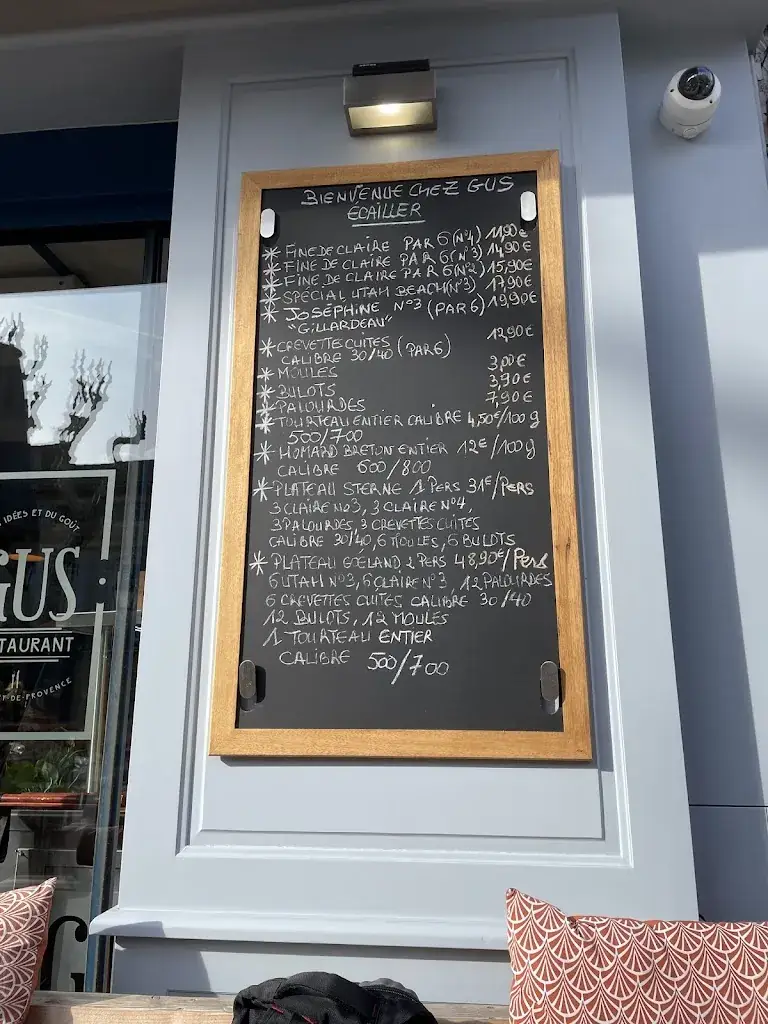 BIENVENUE CHEZ GUS
ECAILLER
* FINE DE CLAIRE PAR 6 (N°4) 11,90€
* FINE DE CLAIRE PAR 6 (N°3) 14,90€
* FINE DE CLAIRE PAR 6 (N°2) 15,90€
* SPECIAL UTAH BEACH (N°3) 17,90€
* JOSÉPHINE N°3 (PAR 6) 19,90€
"GILLARDEAU"
* CREVETTE CUITES 12,90€
CALIBRE 30/40 (PAR 6)
* MOULES 3,00€
* BULOTS 3,90€
* PALOURDES 7,90€
* TOURTEAU ENTIER CALIBRE 4,50€/100g
500/700
* HOMARD BRETON ENTIER 12€/100g
CALIBRE 600/800
* PLATEAU STERNE 1 PERS 31€/PERS
3 CLAIRE N°3, 3 CLAIRE N°4,
3 PALOURDES, 3 CREVETTES CUITES
CALIBRE 30/40, 6 MOULES, 6 BULOTS
* PLATEAU GOÉLAND 2 PERS 48,90€/Pers
6 UTAH N°3, 6 CLAIRE N°3, 12 PALOURDES
6 CREVETTES CUITES CALIBRE 30/40
12 BULOTS, 12 MOULES
1 TOURTEAU ENTIER
CALIBRE 500/700
IDÉES ET DU GOÛT
GUS
TAURANT
DE-PROVENCE